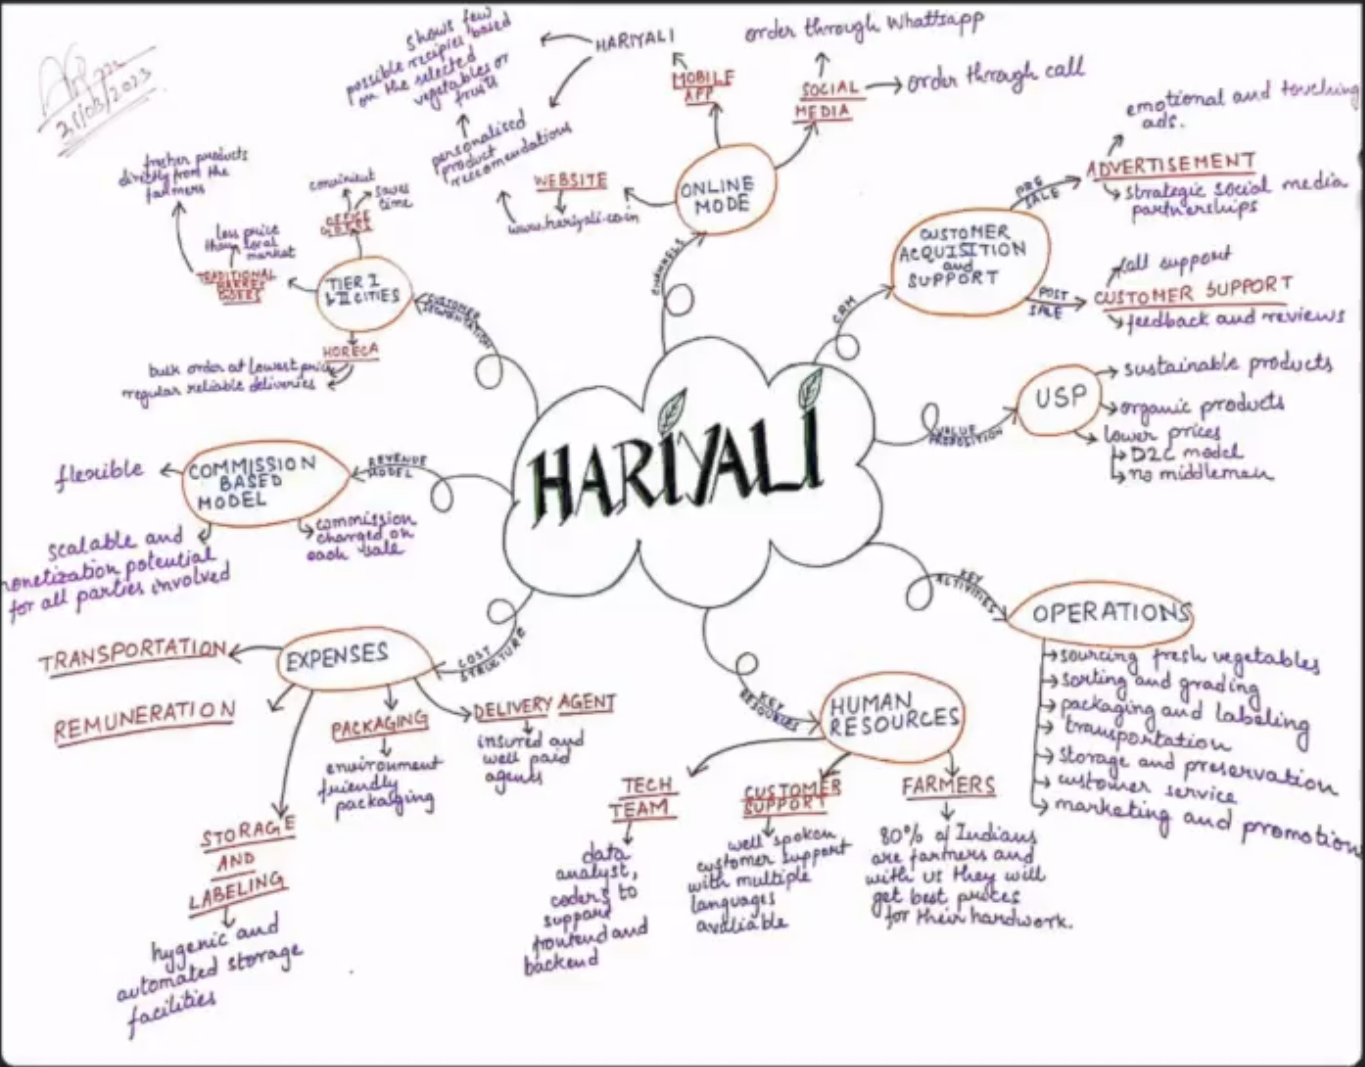 21/03/2023
shows few
possible recipies based
on the selected
vegetables or
fruits
HARIYALI
personalised
product
reccomendations
MOBILE
APP
order through Whattsapp
SOCIAL
MEDIA
order through call
WEBSITE
www.hariyali.co.in
ONLINE
MODE
CHANNELS
emotional and touching
ads.
ADVERTISEMENT
strategic social media
partnerships
PRE
SALE
CUSTOMER
ACQUISITION
and
SUPPORT
CRM
POST
SALE
call support
CUSTOMER SUPPORT
feedback and reviews
fresher products
directly from the
farmers
convinient
saves
time
OFFICE
GOERS
less price
than local
market
TRADITIONAL
GOERS
TIER I
& II CITIES
CUSTOMER
SEGMENTATION
HORECA
bulk order at lowest price
regular reliable deliveries
USP
VALUE
PROPOSITION
sustainable products
organic products
lower prices
D2C model
no middleman
HARIYALI
COMMISSION
BASED
MODEL
REVENUE
MODEL
flexible
scalable and
monetization potential
for all parties involved
commission
charged on
each sale
KEY
ACTIVITIES
OPERATIONS
sourcing fresh vegetables
sorting and grading
packaging and labeling
transportation
storage and preservation
customer service
marketing and promotion
EXPENSES
COST
STRUCTURE
TRANSPORTATION
REMUNERATION
PACKAGING
environment
friendly
packaging
DELIVERY AGENT
insured and
well paid
agents
STORAGE
AND
LABELING
hygenic and
automated storage
facilities
KEY
RESOURCES
HUMAN
RESOURCES
TECH
TEAM
data
analyst,
coders to
support
frontend and
backend
CUSTOMER
SUPPORT
well spoken
customer support
with multiple
languages
avaliable
FARMERS
80% of Indians
are farmers and
with us they will
get best prices
for their hardwork.